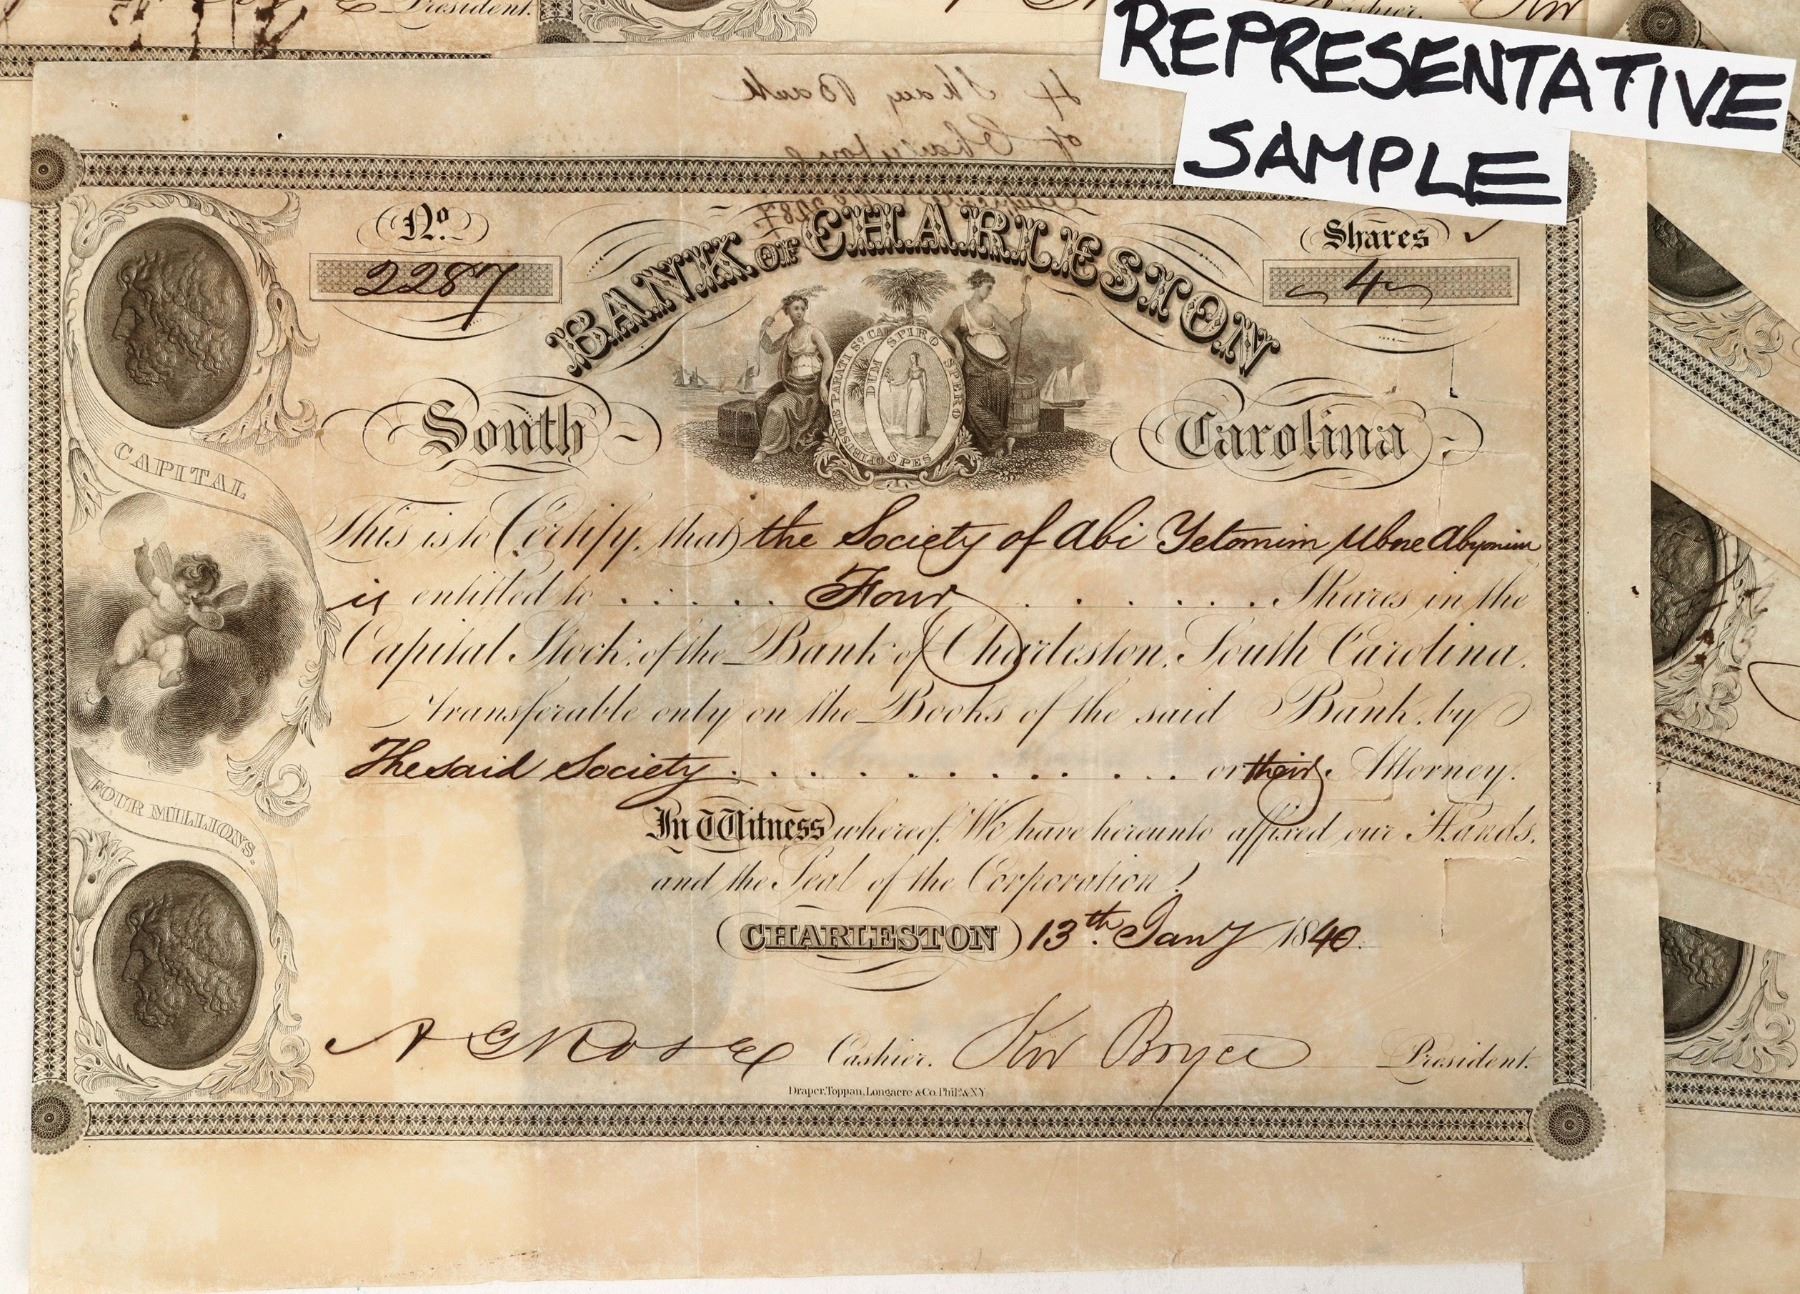 President.
Cashier.
REPRESENTATIVE
SAMPLE
4 Shares Bank
of Charleston
2287
No.
2287
BANK OF CHARLESTON
Shares
4
South Carolina
DUM SPIRO SPERO
SPES
CAPITAL
This is to Certify, that the Society of Abi Yetomim Ubne Abyonim
is entitled to . . . . . Four . . . . . . Shares in the
Capital Stock of the Bank of Charleston, South Carolina,
transferable only on the Books of the said Bank by
The said Society . . . . . . . . . . . . or their Attorney.
FOUR MILLIONS.
In Witness whereof, We have hereunto affixed our Hands,
and the Seal of the Corporation.
CHARLESTON 13th. Jany 1840.
A G Rose Cashier. Ker Boyce President.
Draper, Toppan, Longacre & Co. Phila. & N.Y.